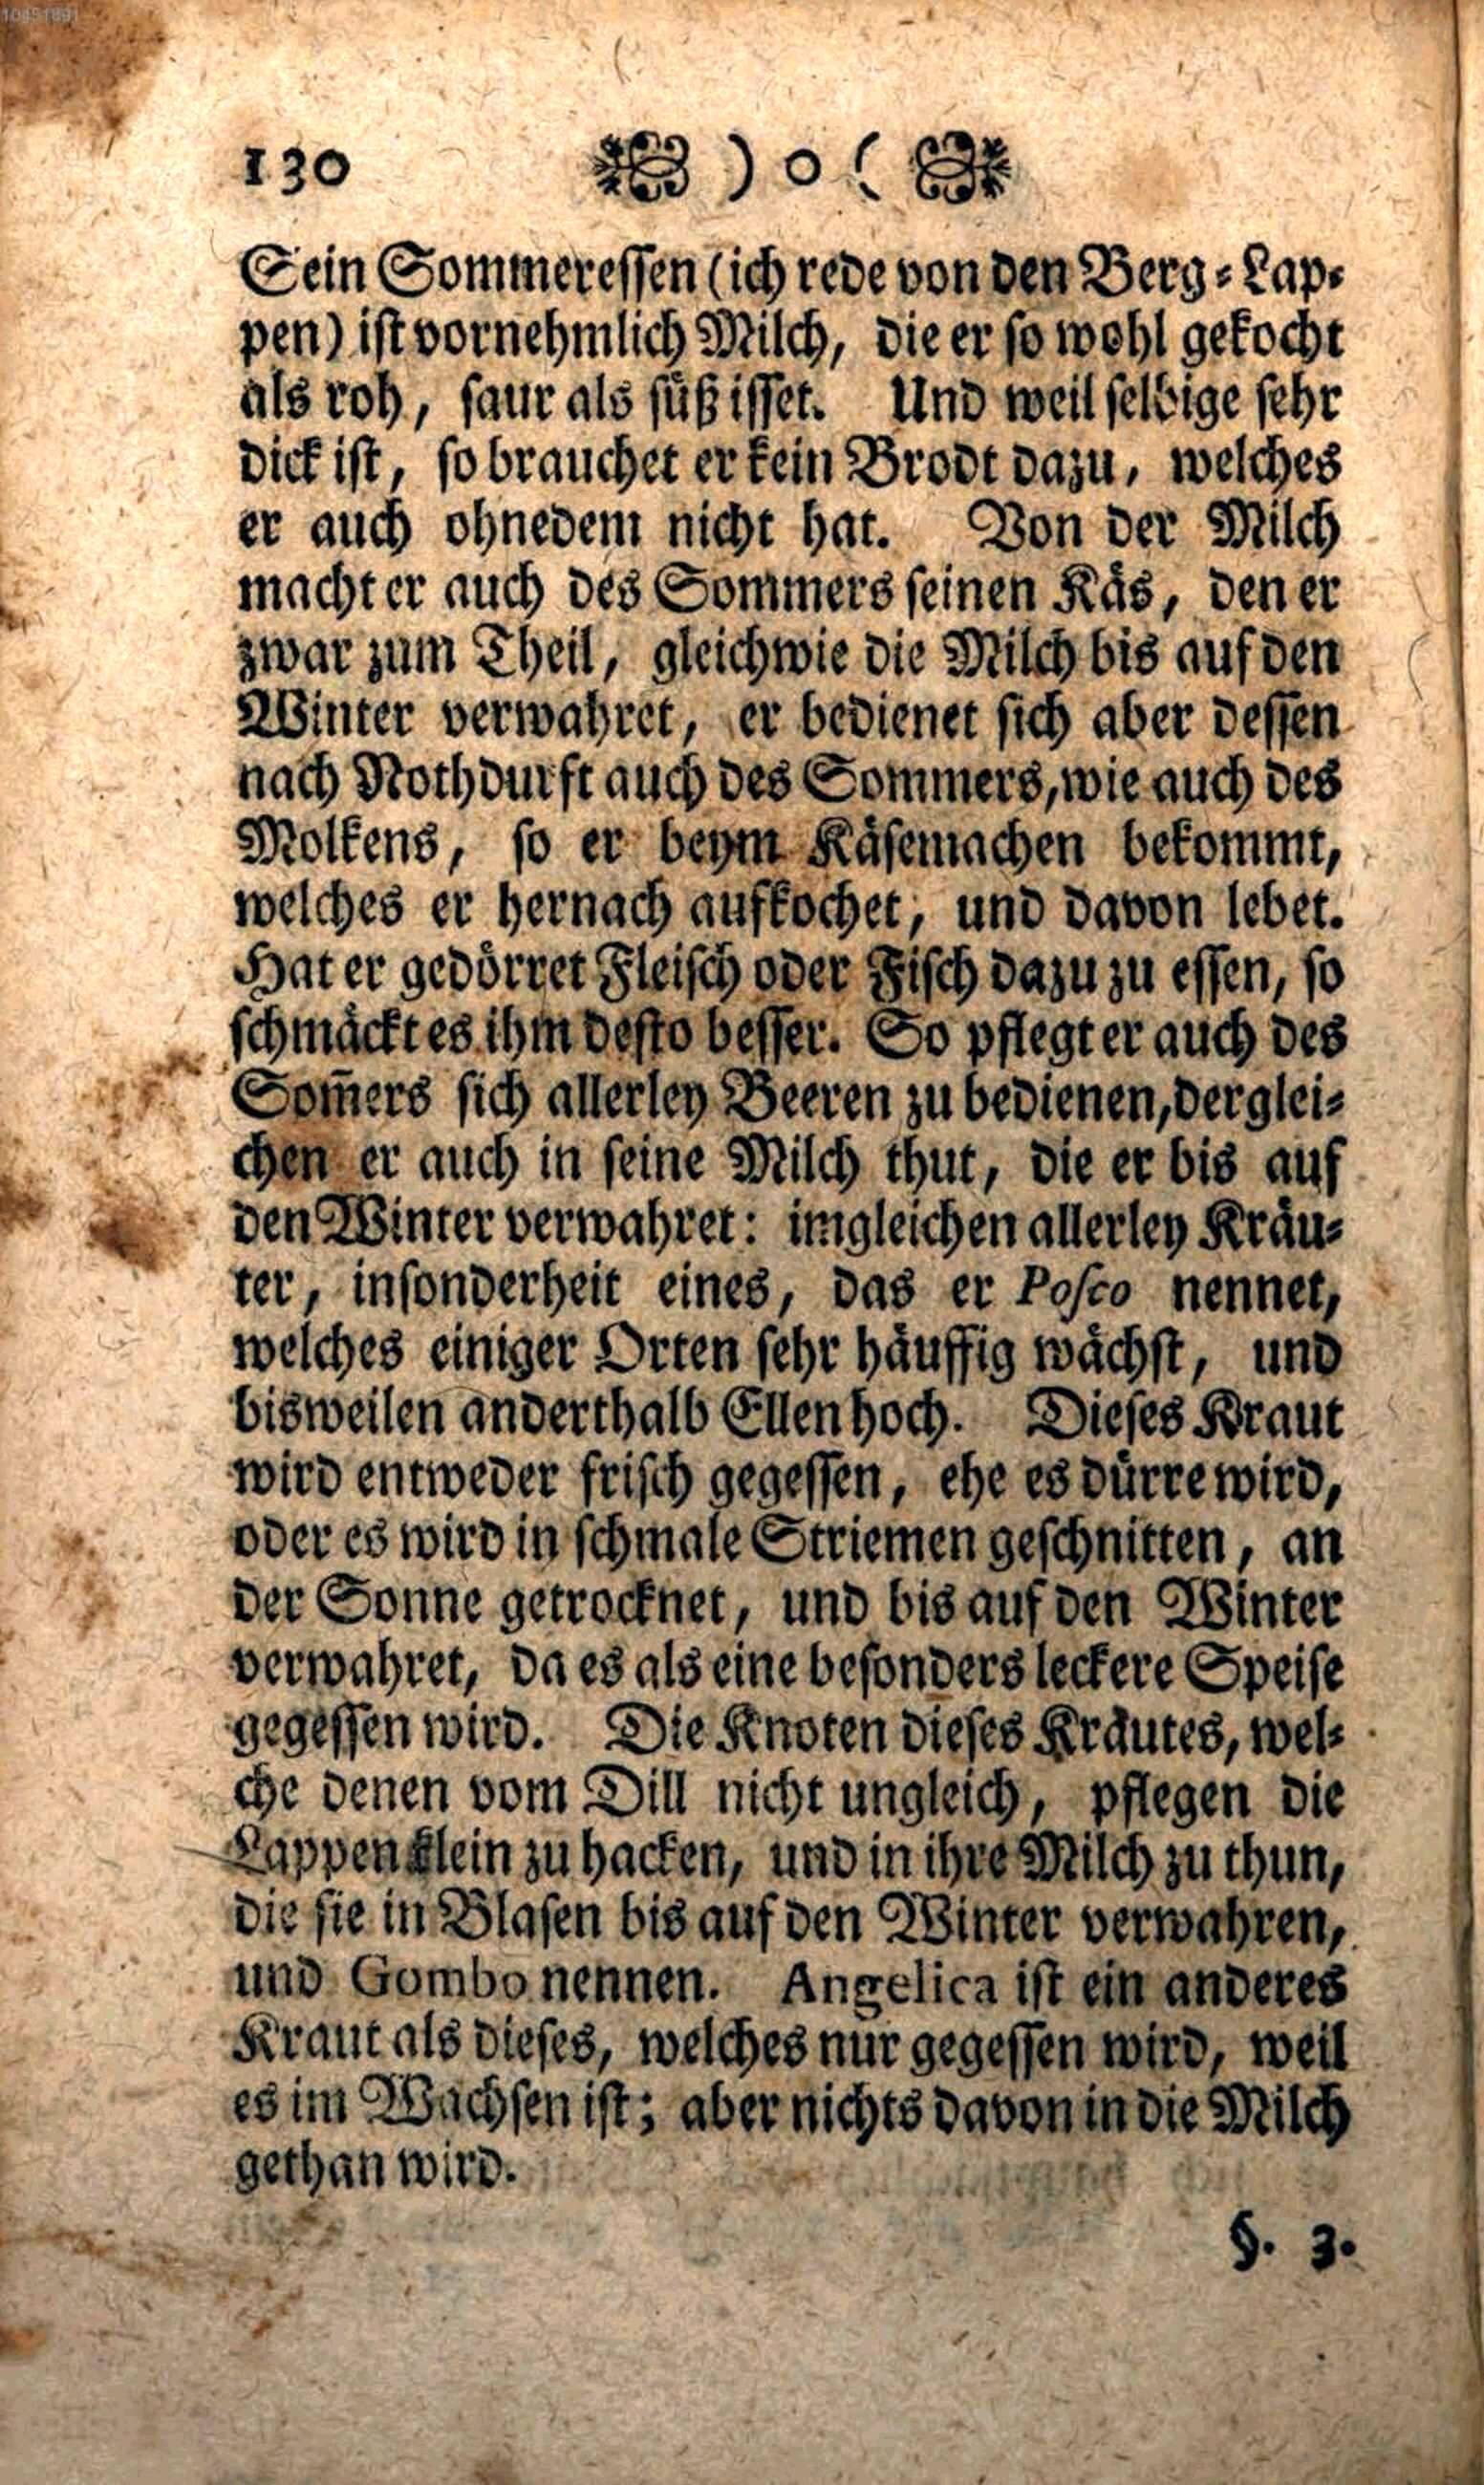 10451891
130 ) o (
Sein Sommeressen (ich rede von den Berg-Lap-
pen) ist vornehmlich Milch, die er so wohl gekocht
als roh, saur als süß isset. Und weil selbige sehr
dick ist, so brauchet er kein Brodt dazu, welches
er auch ohnedem nicht hat. Von der Milch
macht er auch des Sommers seinen Käs, den er
zwar zum Theil, gleichwie die Milch bis auf den
Winter verwahret, er bedienet sich aber dessen
nach Nothdurft auch des Sommers, wie auch des
Molkens, so er beym Käsemachen bekommt,
welches er hernach aufkochet, und davon lebet.
Hat er gedörret Fleisch oder Fisch dazu zu essen, so
schmäckt es ihm desto besser. So pflegt er auch des
Som̄ers sich allerley Beeren zu bedienen, derglei-
chen er auch in seine Milch thut, die er bis auf
den Winter verwahret: imgleichen allerley Kräu-
ter, insonderheit eines, das er Posco nennet,
welches einiger Orten sehr häuffig wächst, und
bisweilen anderthalb Ellen hoch. Dieses Kraut
wird entweder frisch gegessen, ehe es dürre wird,
oder es wird in schmale Striemen geschnitten, an
der Sonne getrocknet, und bis auf den Winter
verwahret, da es als eine besonders leckere Speise
gegessen wird. Die Knoten dieses Kräutes, wel-
che denen vom Dill nicht ungleich, pflegen die
Lappen klein zu hacken, und in ihre Milch zu thun,
die sie in Blasen bis auf den Winter verwahren,
und Gombo nennen. Angelica ist ein anderes
Kraut als dieses, welches nur gegessen wird, weil
es im Wachsen ist; aber nichts davon in die Milch
gethan wird.
§. 3.